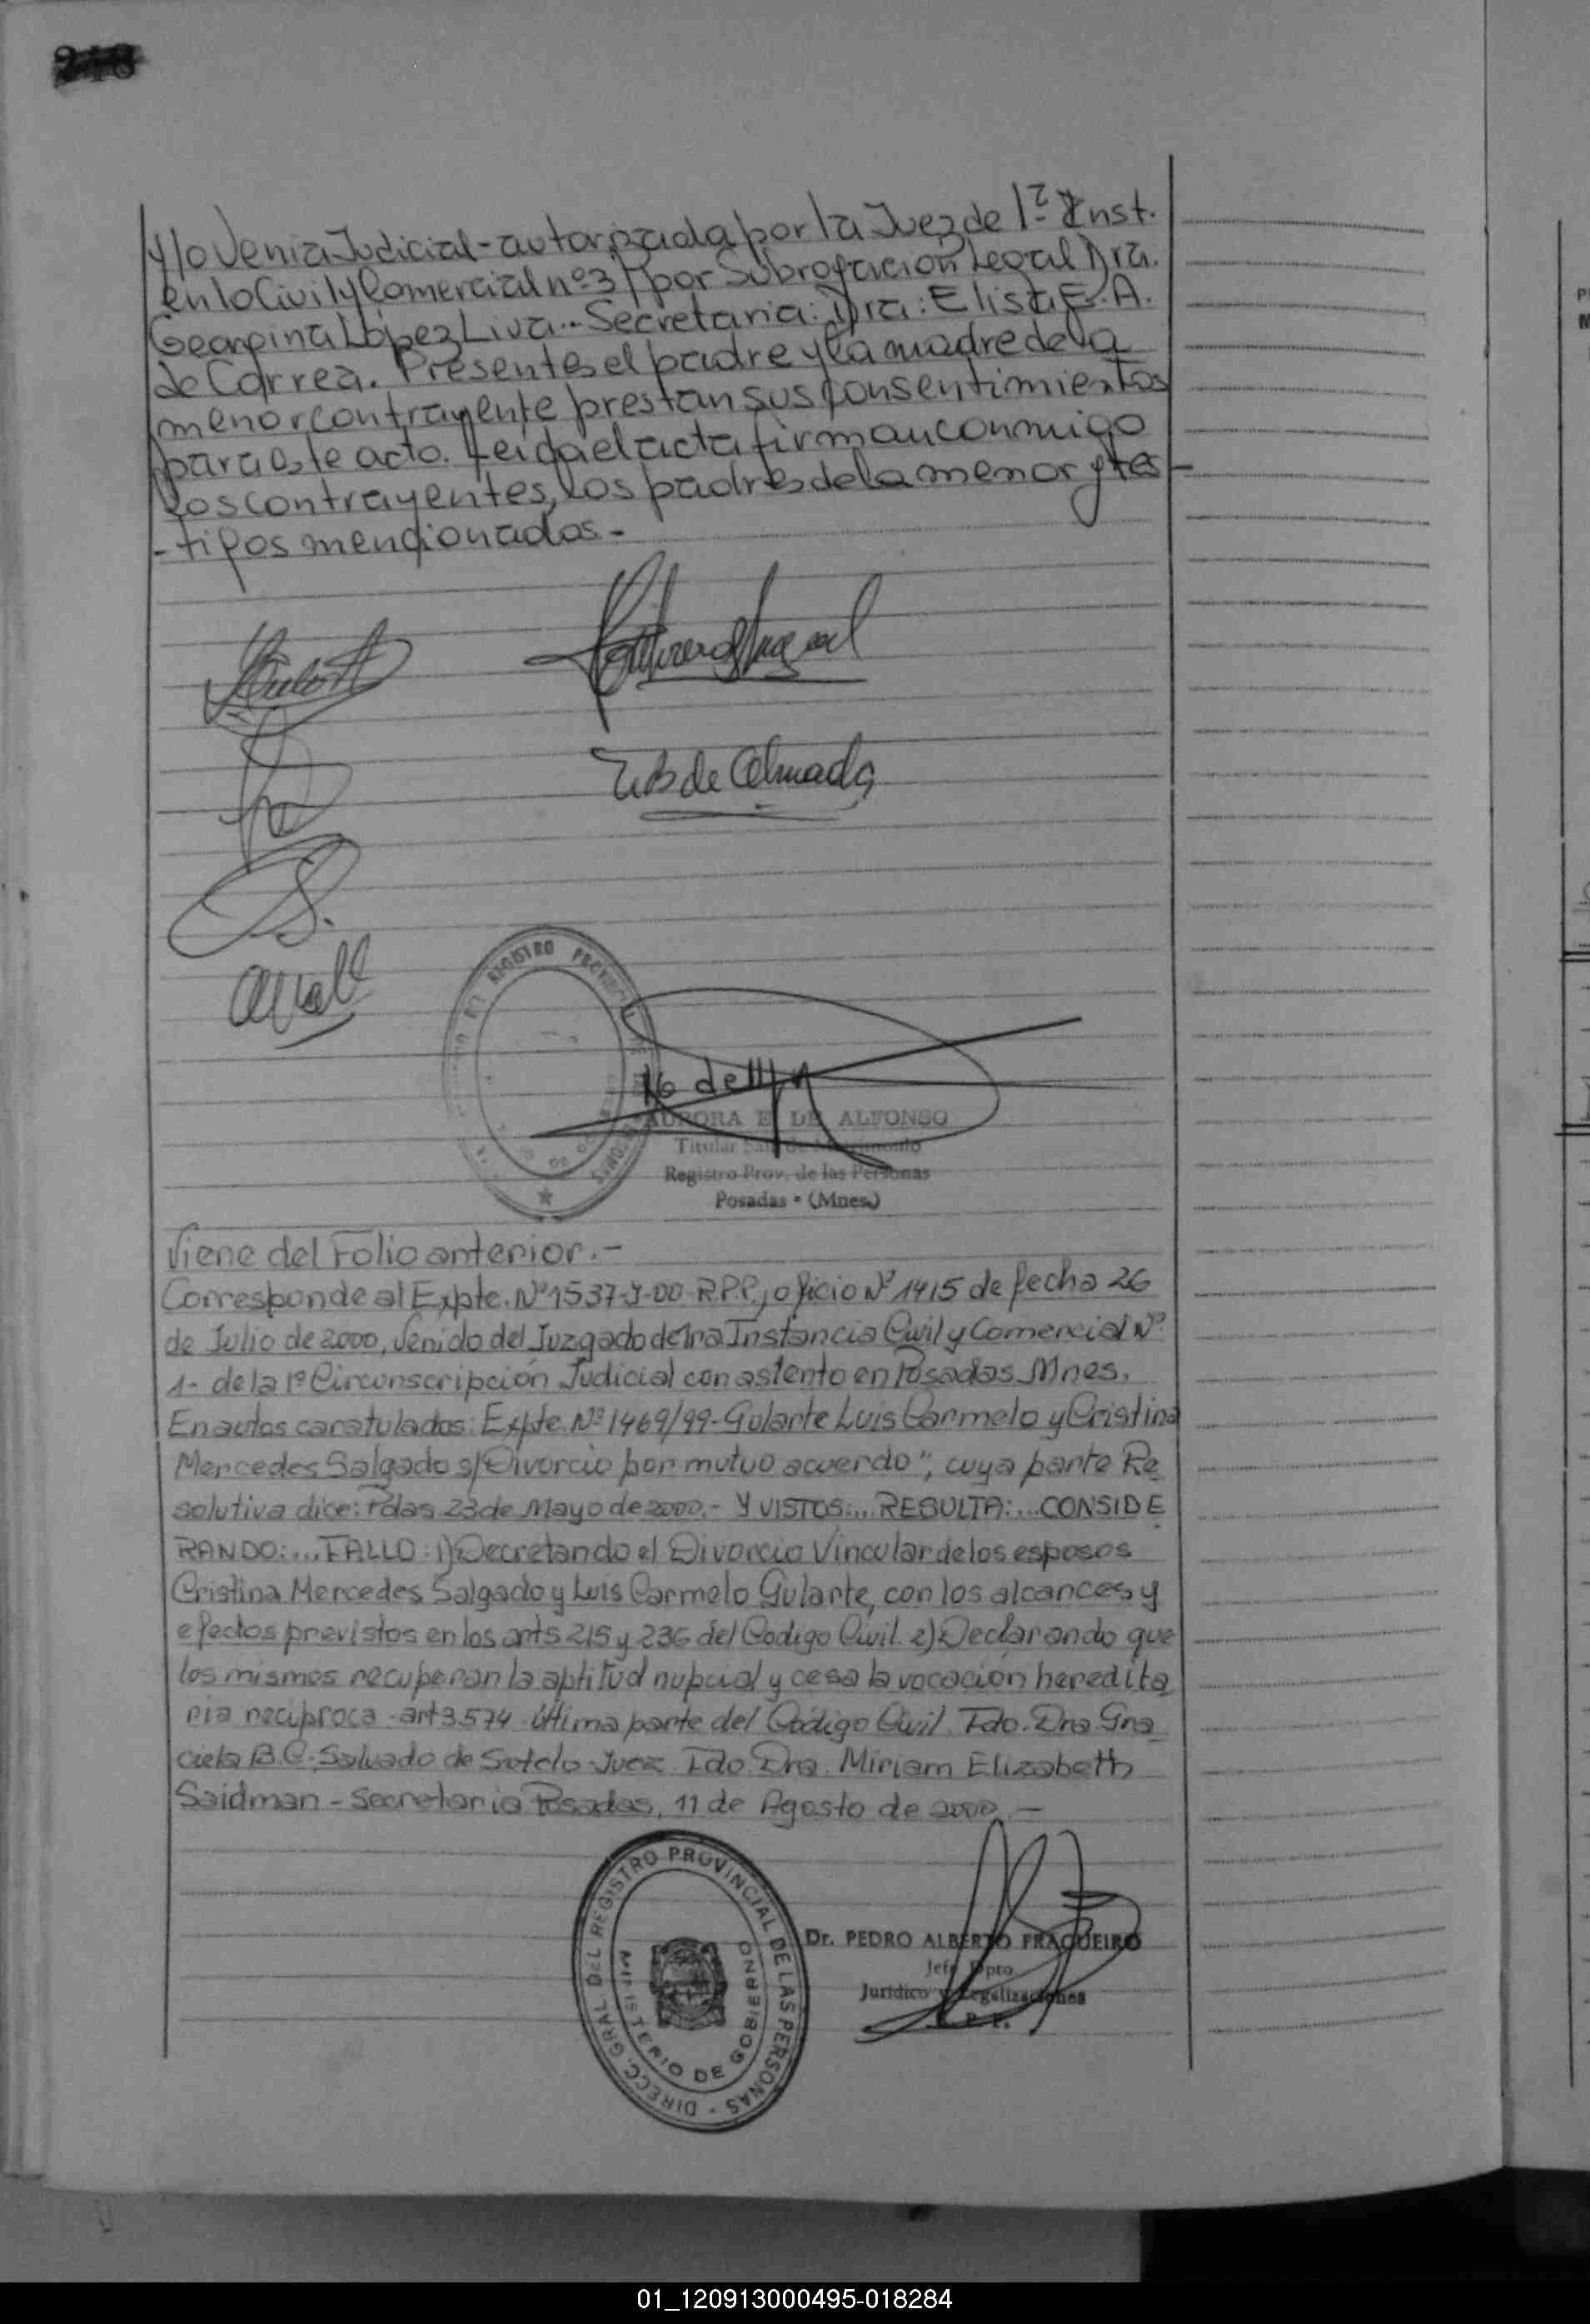 y/o Venia Judicial - autorizada por la Juez de 1ª Inst.
en lo Civil y Comercial nº 3 por Subrogación Legal Dra.
Georgina López Liva.- Secretaria: Dra: Elisa E. A.
de Correa. Presentes el padre y la madre de la
menor contrayente prestan sus consentimientos
para este acto. Leida el acta firman conmigo
los contrayentes, los padres de la menor y tes-
-tigos mencionados.-
de Almada
REGISTRO PROVINCIAL
AURORA E. DE ALFONSO
Titular
Registro Prov. de las Personas
Posadas - (Mnes.)
Viene del Folio anterior.-
Corresponde al Expte. Nº 1537-J-00-R.P.P., oficio Nº 1415 de fecha 26
de Julio de 2000, venido del Juzgado de 1ra Instancia Civil y Comercial Nº
1- de la 1º Circunscripción Judicial con asiento en Posadas Mnes.
En autos caratulados: Expte. Nº 1469/99- Gularte Luis Carmelo y Cristina
Mercedes Salgado s/Divorcio por mutuo acuerdo", cuya parte Re
solutiva dice: Pdas 23 de Mayo de 2000.- Y VISTOS:... RESULTA:... CONSIDE
RANDO:... FALLO: 1) Decretando el Divorcio Vincular de los esposos
Cristina Mercedes Salgado y Luis Carmelo Gularte, con los alcances y
efectos previstos en los arts 215 y 236 del Codigo Civil. 2) Declarando que
los mismos recuperan la aptitud nupcial y cesa la vocación heredita
ria reciproca - art 3.574 - última parte del Código Civil. Fdo. Dra. Gra
ciela B. C. Salvado de Sotelo - Juez Fdo Dra. Miriam Elizabeth
Saidman - Secretaria Posadas, 11 de Agosto de 2000.-
DIRECC. GRAL. DEL REGISTRO PROVINCIAL DE LAS PERSONAS -
MINISTERIO DE GOBIERNO
Dr. PEDRO ALBERTO FRAGUEIRO
Jefe Dpto.
Jurídico y Legalizaciones
R. P. P.
01_120913000495-018284